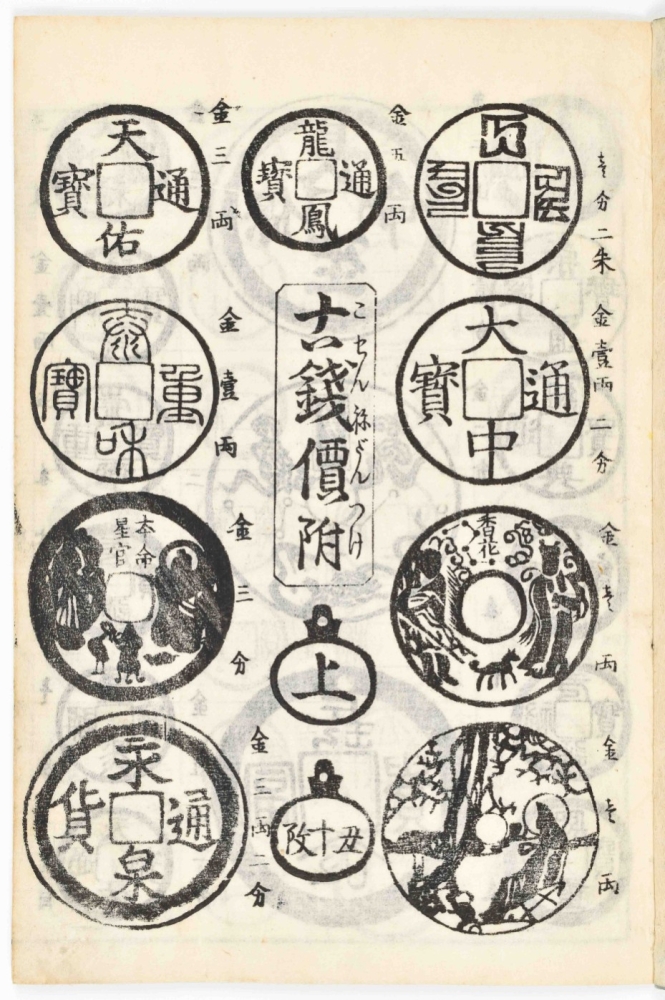 分二朱
大中通寶
金壹兩二分
香花
金壱両
金壱両
龍鳳通寶
金五両
古錢價附
こせんねだんつけ
上
天佑通寶
金三両
泰和重寶
金壹両
本命星官
金三分
永通泉貨